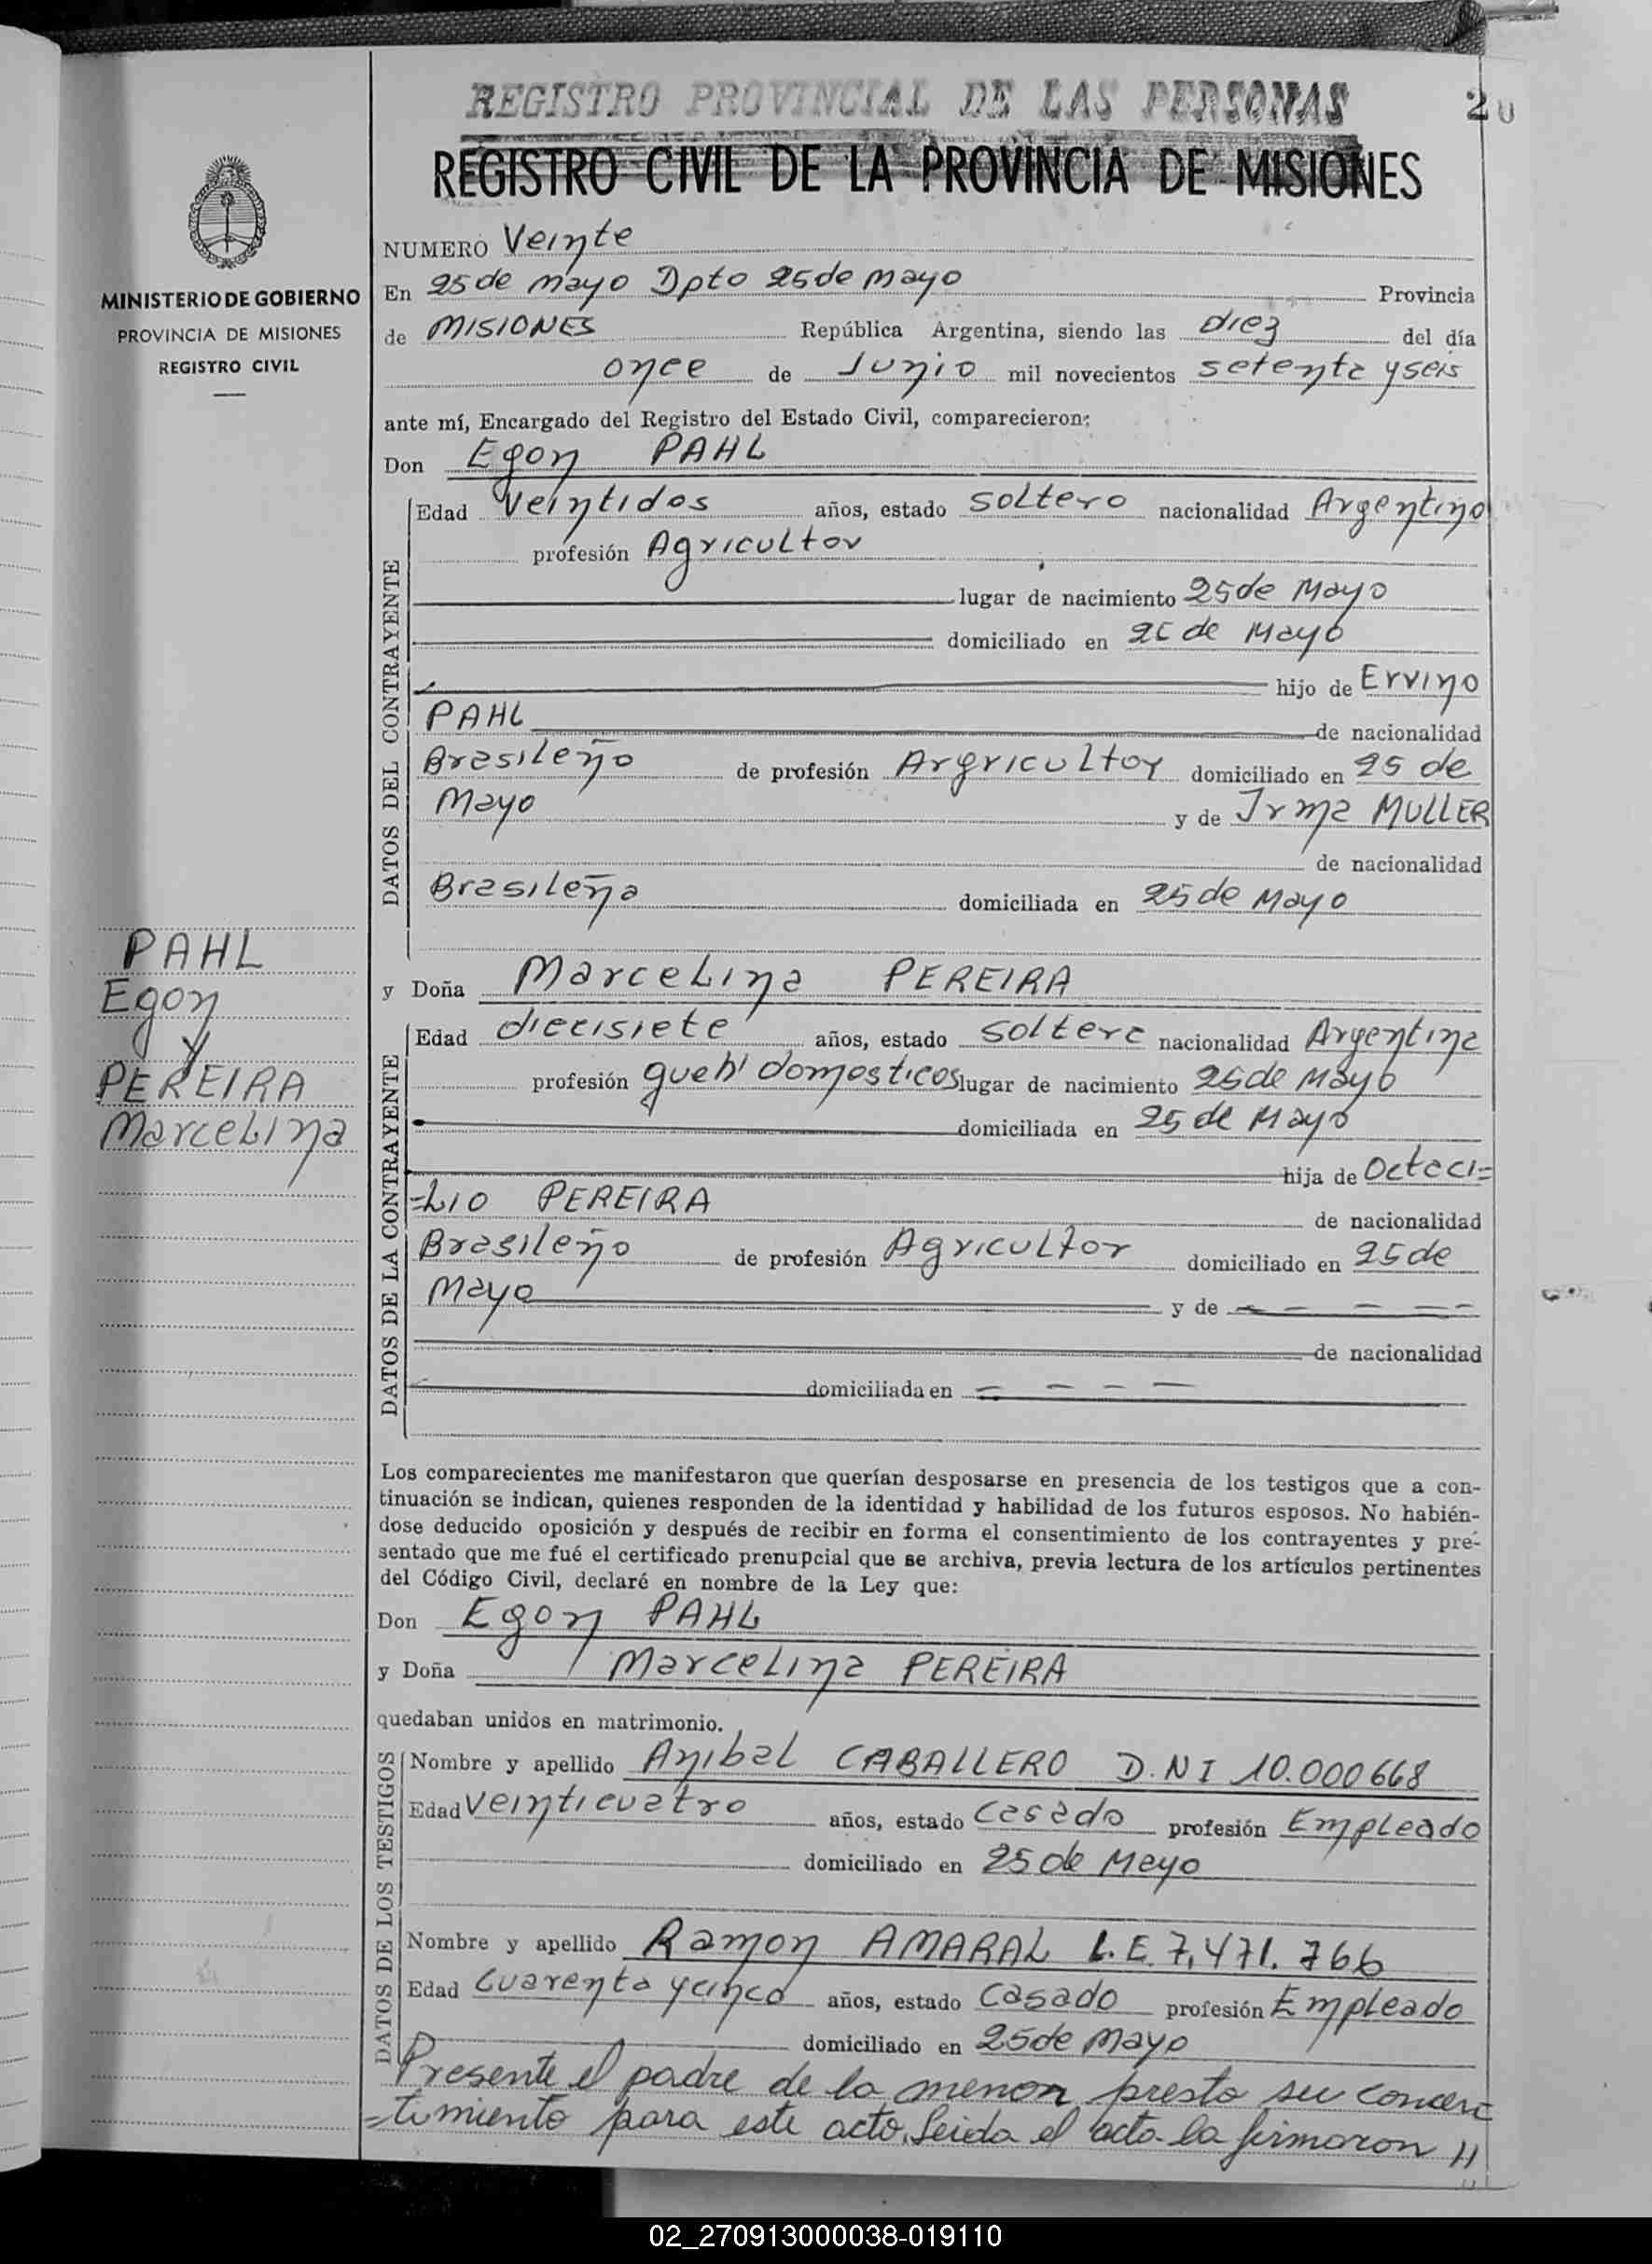 REGISTRO PROVINCIAL DE LAS PERSONAS
20
REGISTRO CIVIL DE LA PROVINCIA DE MISIONES
MINISTERIO DE GOBIERNO
PROVINCIA DE MISIONES
REGISTRO CIVIL
NUMERO Veinte
En 25 de mayo Dpto 25 de mayo Provincia
de MISIONES República Argentina, siendo las diez del día
once de Junio mil novecientos setenta y seis
ante mí, Encargado del Registro del Estado Civil, comparecieron:
Don Egon PAHL
DATOS DEL CONTRAYENTE
Edad Veintidos años, estado soltero nacionalidad Argentino
profesión Agricultor
lugar de nacimiento 25 de Mayo
domiciliado en 25 de Mayo
hijo de Ervino
PAHL de nacionalidad
Brasileño de profesión Argricultor domiciliado en 25 de
Mayo y de Irma MULLER
de nacionalidad
Brasileña domiciliada en 25 de Mayo
PAHL
Egon
y
PEREIRA
Marcelina
y Doña Marcelina PEREIRA
DATOS DE LA CONTRAYENTE
Edad diecisiete años, estado soltera nacionalidad Argentina
profesión domosticos lugar de nacimiento 25 de Mayo
domiciliada en 25 de Mayo
hija de Octaci=
=lio PEREIRA de nacionalidad
Brasileño de profesión Agricultor domiciliado en 25 de
Mayo y de - - - -
de nacionalidad
domiciliada en - - - -
Los comparecientes me manifestaron que querían desposarse en presencia de los testigos que a con-
tinuación se indican, quienes responden de la identidad y habilidad de los futuros esposos. No habién-
dose deducido oposición y después de recibir en forma el consentimiento de los contrayentes y pre-
sentado que me fué el certificado prenupcial que se archiva, previa lectura de los artículos pertinentes
del Código Civil, declaré en nombre de la Ley que:
Don Egon PAHL
y Doña Marcelina PEREIRA
quedaban unidos en matrimonio.
DATOS DE LOS TESTIGOS
Nombre y apellido Anibal CABALLERO D.NI 10.000668
Edad Veinticuatro años, estado Casado profesión Empleado
domiciliado en 25 de Mayo
Nombre y apellido Ramon AMARAL L.E. 7.471.766
Edad Cuarenta y cinco años, estado Casado profesión Empleado
domiciliado en 25 de Mayo
Presente el padre de la menor presto su concen
=timiento para este acto. Leida el acta la firmaron //
02_270913000038-019110